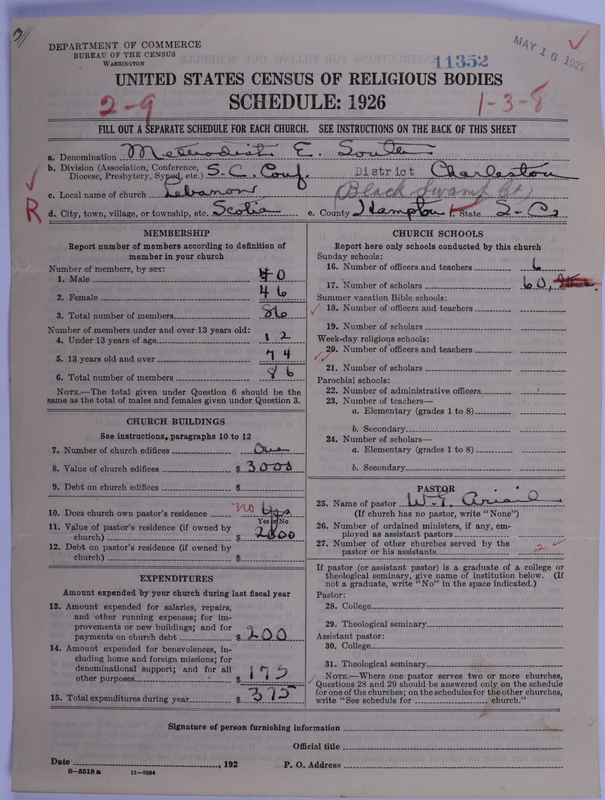 DEPARTMENT OF COMMERCE
BUREAU OF THE CENSUS
WASHINGTON
11352
MAY 16 1927
UNITED STATES CENSUS OF RELIGIOUS BODIES
2-9
SCHEDULE: 1926
1-3-8
FILL OUT A SEPARATE SCHEDULE FOR EACH CHURCH. SEE INSTRUCTIONS ON THE BACK OF THIS SHEET
a. Denomination Methodist E. South
b. Division (Association, Conference, Diocese, Presbytery, Synod, etc.) S.C. Conf. District Charleston
c. Local name of church Lebanon (Black Swamp Ct)
R
d. City, town, village, or township, etc. Scotia e. County Hampton f. State S-C.
MEMBERSHIP
Report number of members according to definition of
member in your church
Number of members, by sex:
1. Male 40
2. Female 46
3. Total number of members 86
Number of members under and over 13 years old:
4. Under 13 years of age 12
5. 13 years old and over 74
6. Total number of members 86
NOTE.—The total given under Question 6 should be the
same as the total of males and females given under Question 3.
CHURCH BUILDINGS
See instructions, paragraphs 10 to 12
7. Number of church edifices One
8. Value of church edifices $ 3000
9. Debt on church edifices $
10. Does church own pastor's residence no Yes
Yes or No
11. Value of pastor's residence (if owned by
church) $ 2000
12. Debt on pastor's residence (if owned by
church) $
EXPENDITURES
Amount expended by your church during last fiscal year
13. Amount expended for salaries, repairs,
and other running expenses; for im-
provements or new buildings; and for
payments on church debt $ 200
14. Amount expended for benevolences, in-
cluding home and foreign missions; for
denominational support; and for all
other purposes $ 175
15. Total expenditures during year $ 375
CHURCH SCHOOLS
Report here only schools conducted by this church
Sunday schools:
16. Number of officers and teachers 6
17. Number of scholars 60
Summer vacation Bible schools:
18. Number of officers and teachers
19. Number of scholars
Week-day religious schools:
20. Number of officers and teachers
21. Number of scholars
Parochial schools:
22. Number of administrative officers
23. Number of teachers—
a. Elementary (grades 1 to 8)
b. Secondary
24. Number of scholars—
a. Elementary (grades 1 to 8)
b. Secondary
PASTOR
25. Name of pastor W.T. Ariail
(If church has no pastor, write "None")
26. Number of ordained ministers, if any, em-
ployed as assistant pastors
27. Number of other churches served by the
pastor or his assistants 2
If pastor (or assistant pastor) is a graduate of a college or
theological seminary, give name of institution below. (If
not a graduate, write "No" in the space indicated.)
Pastor:
28. College
29. Theological seminary
Assistant pastor:
30. College
31. Theological seminary
NOTE.—Where one pastor serves two or more churches,
Questions 28 and 29 should be answered only on the schedule
for one of the churches; on the schedules for the other churches,
write "See schedule for church."
Signature of person furnishing information
Official title
Date , 192 P. O. Address
8-5518 a 11-9034